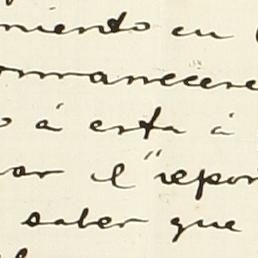 miento en
ermanecere
o á esta á
ar el "repor
saber que